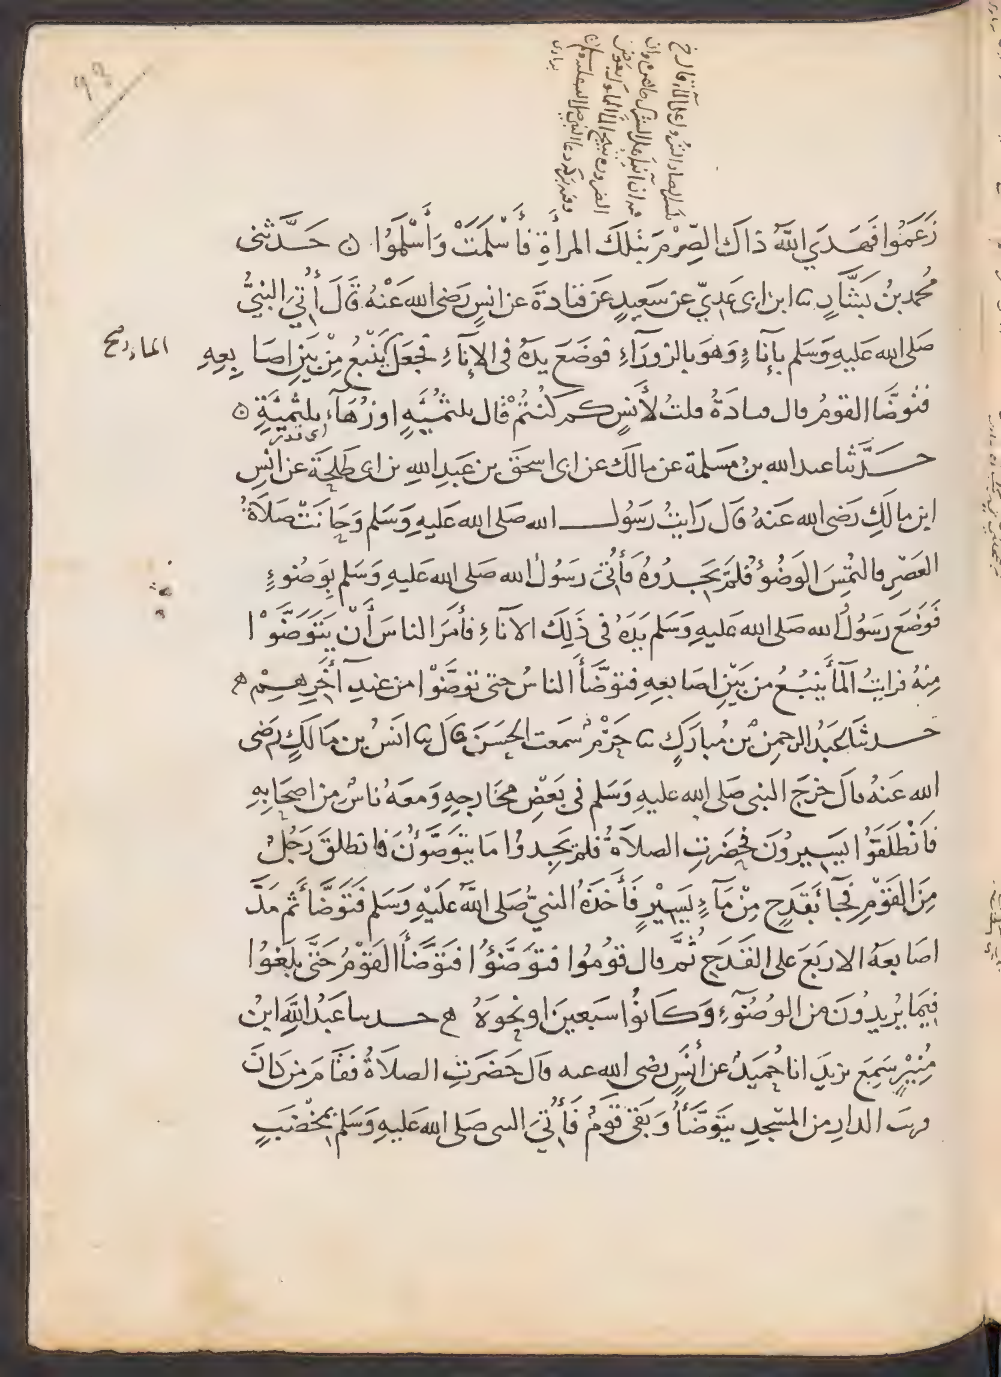 زَعَمُوا فَهَدَي اللَّهُ ذاكَ الصِّرْمَ بِتلكَ المرأةِ فأسْلمَتْ وَأسْلمَوُا ۞ حَدَّثنى
مُحمد بنُ بَشَّارٍ ثنا ابن ابى عَدِيّ عن سَعِيدٍ عَن قتادةَ عن انسٍ رَضى الله عَنْهُ قَالَ أُتِيَ النبيُّ
صَلى الله عَليهِ وَسَلم بإنآءٍ وَهوَ بالزورَآءِ فوضَعَ يدَهُ فى الإنآءِ فجَعَلَ يَنْبُعُ مِنْ بَيْنِ اصَابِعِهِ
الماء صح
فتوضَّا القومُ قال قتادَةُ قلتُ لأنَسٍ كم كُنْتُمْ قال ثلثمئةٍ او زُهَآءَ ثلثمئةٍ ۞
اى قدر
حَدَّثنا عبد الله بنُ مَسلمة عن مالكَ عن اسحَقَ بن عَبدِ اللهِ بن ابى طَلحَةَ عن انَسِ
ابن مالكٍ رَضى الله عَنهُ قالَ رَايتُ رَسُول الله صَلى الله عَليهِ وَسَلم وَحَانَتْ صَلاَةُ
العَصْرِ فالتُمِسَ الوَضُوُ فلمْ يَجِدُوهُ فَأُتىَ رَسُولُ الله صَلى الله عَليهِ وَسَلم بِوَضُوءٍ
فَوَضَعَ رسَوُلُ الله صَلى الله عَليهِ وَسَلم يَدَهُ فى ذَلِكَ الانآءِ فأمَرَ الناسَ أَنْ يَتَوَضَّوْا
مِنْهُ فرايتُ المآَ يَنْبُعُ من بَيْنِ اصَابعِهِ فتوَضَّأَ الناسُ حتى توضَّوْا من عندِ آخِرِهِمْ
حَدثنَا عَبدُ الرحمنِ بْن مُبارَكٍ ثنا حَزْمٌ سَمعت الحسَنَ قال ثنا انَسُ بن مَالكٍ رَضى
الله عَنهُ قالَ خرَجَ النبى صَلى الله عَليهِ وَسَلم فى بَعْضِ مخَارجِهِ وَمعَهُ ناسٌ من اصحَابهِ
فَانْطَلَقَوُا يَسِيرُونَ فحَضَرَتِ الصلاَةُ فلم يَجِدوُا مَا يتوَضَّؤُنَ فانطلقَ رَجُلٌ
مِنَ القَوْمِ فَجَآ بقَدَحٍ مِنْ مَآءٍ يَسِيْرٍ فَأَخَذَهُ النبيُّ صَلى اللَّهُ عَلَيْهِ وَسَلم فَتَوَضَّأَ ثم مَدَّ
اصَابعَهُ الاربَعَ على القَدَحِ ثُمَّ قال قوُموُا فتوَضَّؤُا فتوَضَّأَ القَوْمُ حَتَّى بلَغوُا
فِيمَا يُرِيدُونَ من الوُضُوءِ وَكَانوُا سَبعينَ او نحْوَهُ حدثنا عَبدُ اللَّهِ ابنُ
مُنِيْرٍ سَمِعَ يَزيدَ انا حُميَدٌ عن أَنَسٍ رضى الله عنه قال حَضَرَتِ الصلاَةُ فقَامَ من كانَ
قريبَ الدارِ من المسْجدِ يتوَضَّأُ وَبَقىَ قومٌ فَأُتِيَ النبى صَلى الله عَليهِ وَسَلم بِمخْضَبٍ